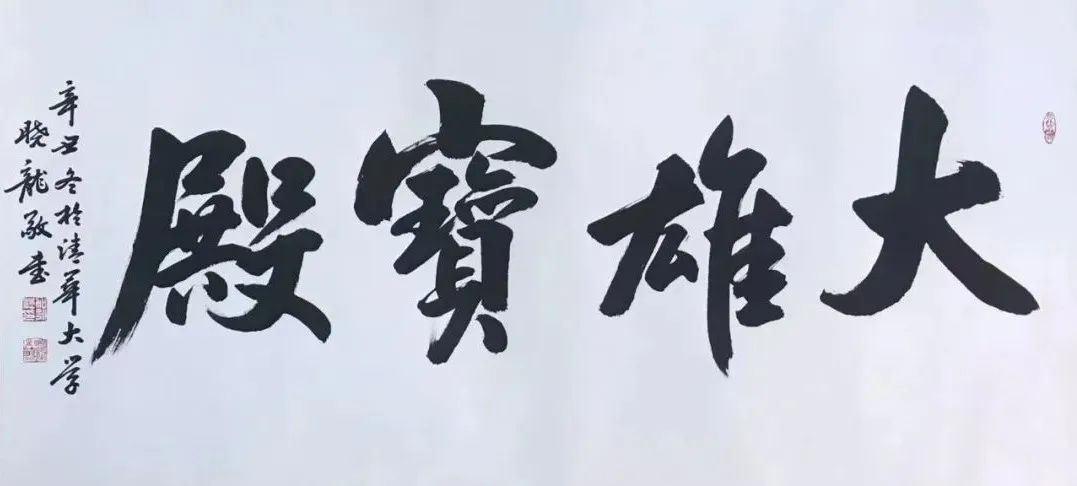 大雄寶殿
辛丑冬於清華大学
晓龍敬書